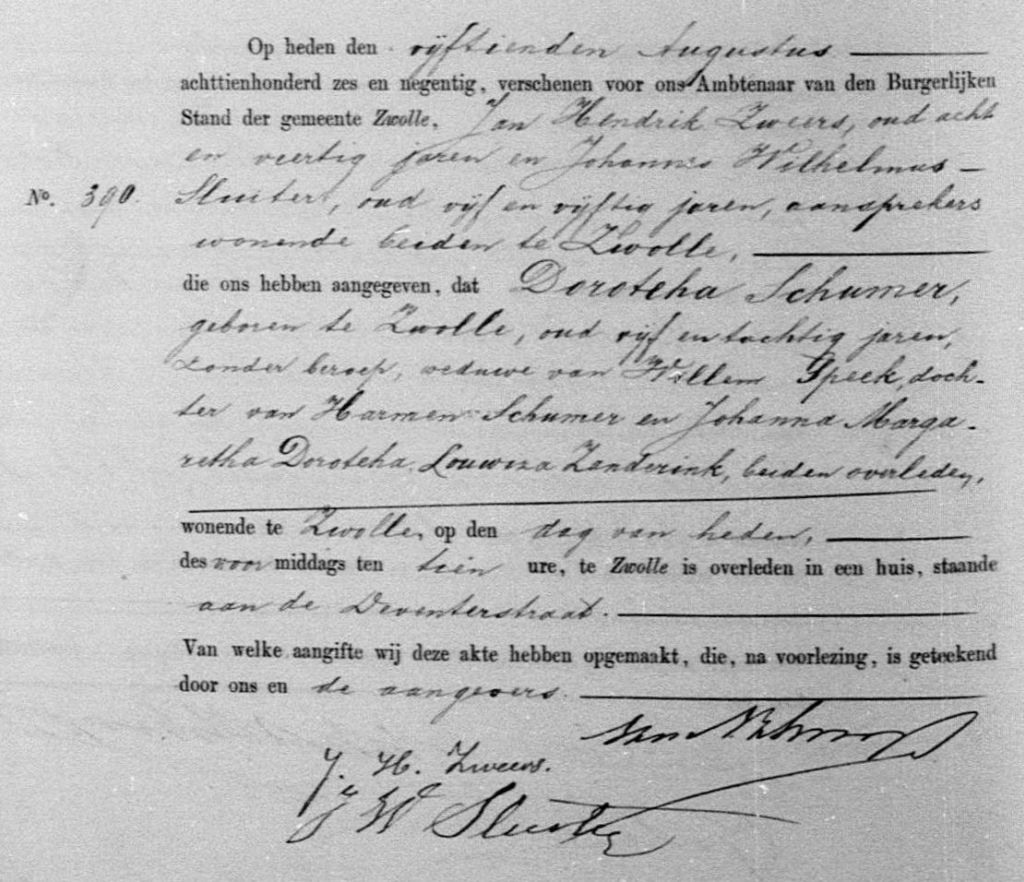 Op heden den vijftienden Augustus
achttienhonderd zes en negentig, verschenen voor ons Ambtenaar van den Burgerlijken
Stand der gemeente Zwolle, Jan Hendrik Zweers, oud acht
en veertig jaren en Johannes Wilhelmus
No. 390. Sluiter, oud vijf en vijftig jaren, aansprekers
wonende beiden te Zwolle,
die ons hebben aangegeven, dat Doroteha Schumer,
geboren te Zwolle, oud vijf en tachtig jaren,
zonder beroep, weduwe van Willem Speek, doch-
ter van Harmen Schumer en Johanna Marga-
retha Doroteha Louwiza Zanderink, beiden overleden,
wonende te Zwolle, op den dag van heden,
des voor middags ten tien ure, te Zwolle is overleden in een huis, staande
aan de Deventerstraat.
Van welke aangifte wij deze akte hebben opgemaakt, die, na voorlezing, is geteekend
door ons en de aangevers.
J. H. Zweers.
J W Sluiter